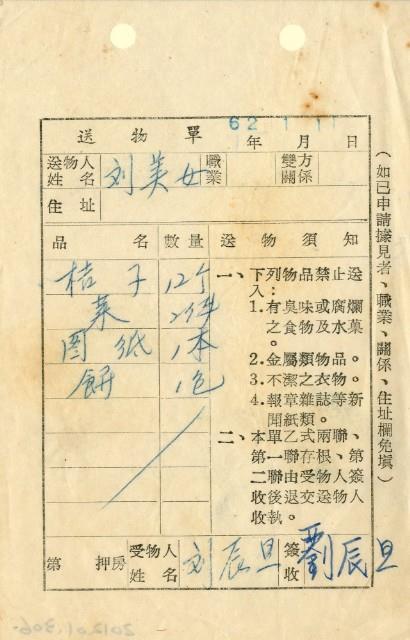 送物單
62 1 11
年 月 日
送物人姓名 刘美女 職業 雙方關係
住址
品名 數量 送物須知
桔子 12个
菜 2件
图纸 1本
餅 1包
一、下列物品禁止送入：
1. 有臭味或腐爛之食物及水菓。
2. 金屬類物品。
3. 不潔之衣物。
4. 報章雜誌等新聞紙類。
二、本單乙式兩聯、第一聯存根、第二聯由受物人簽收後退交送物人收執。
第 押房 受物人姓名 刘辰旦 簽收 劉辰旦
（如已申請據見者、職業、關係、住址欄免填）
2012.01.306